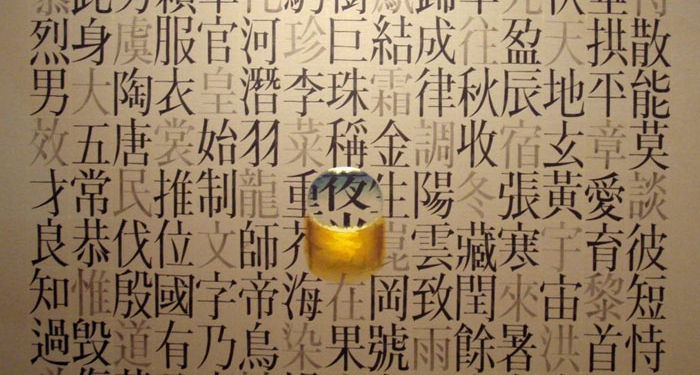 散能莫談彼短恃
垂拱平章愛育黎首
伏天地玄黃宇宙洪
盈辰宿張寒來暑
往秋收冬藏閏餘
歸成律調陽雲致雨
結霜金生崑岡號
巨珠稱夜光在果
珍李菜重芥海染
河潛羽龍師帝鳥
官皇始制文字乃
賴服衣裳推位國有
虞陶唐民伐殷道
此身大五常恭惟毀
烈男效才良知過